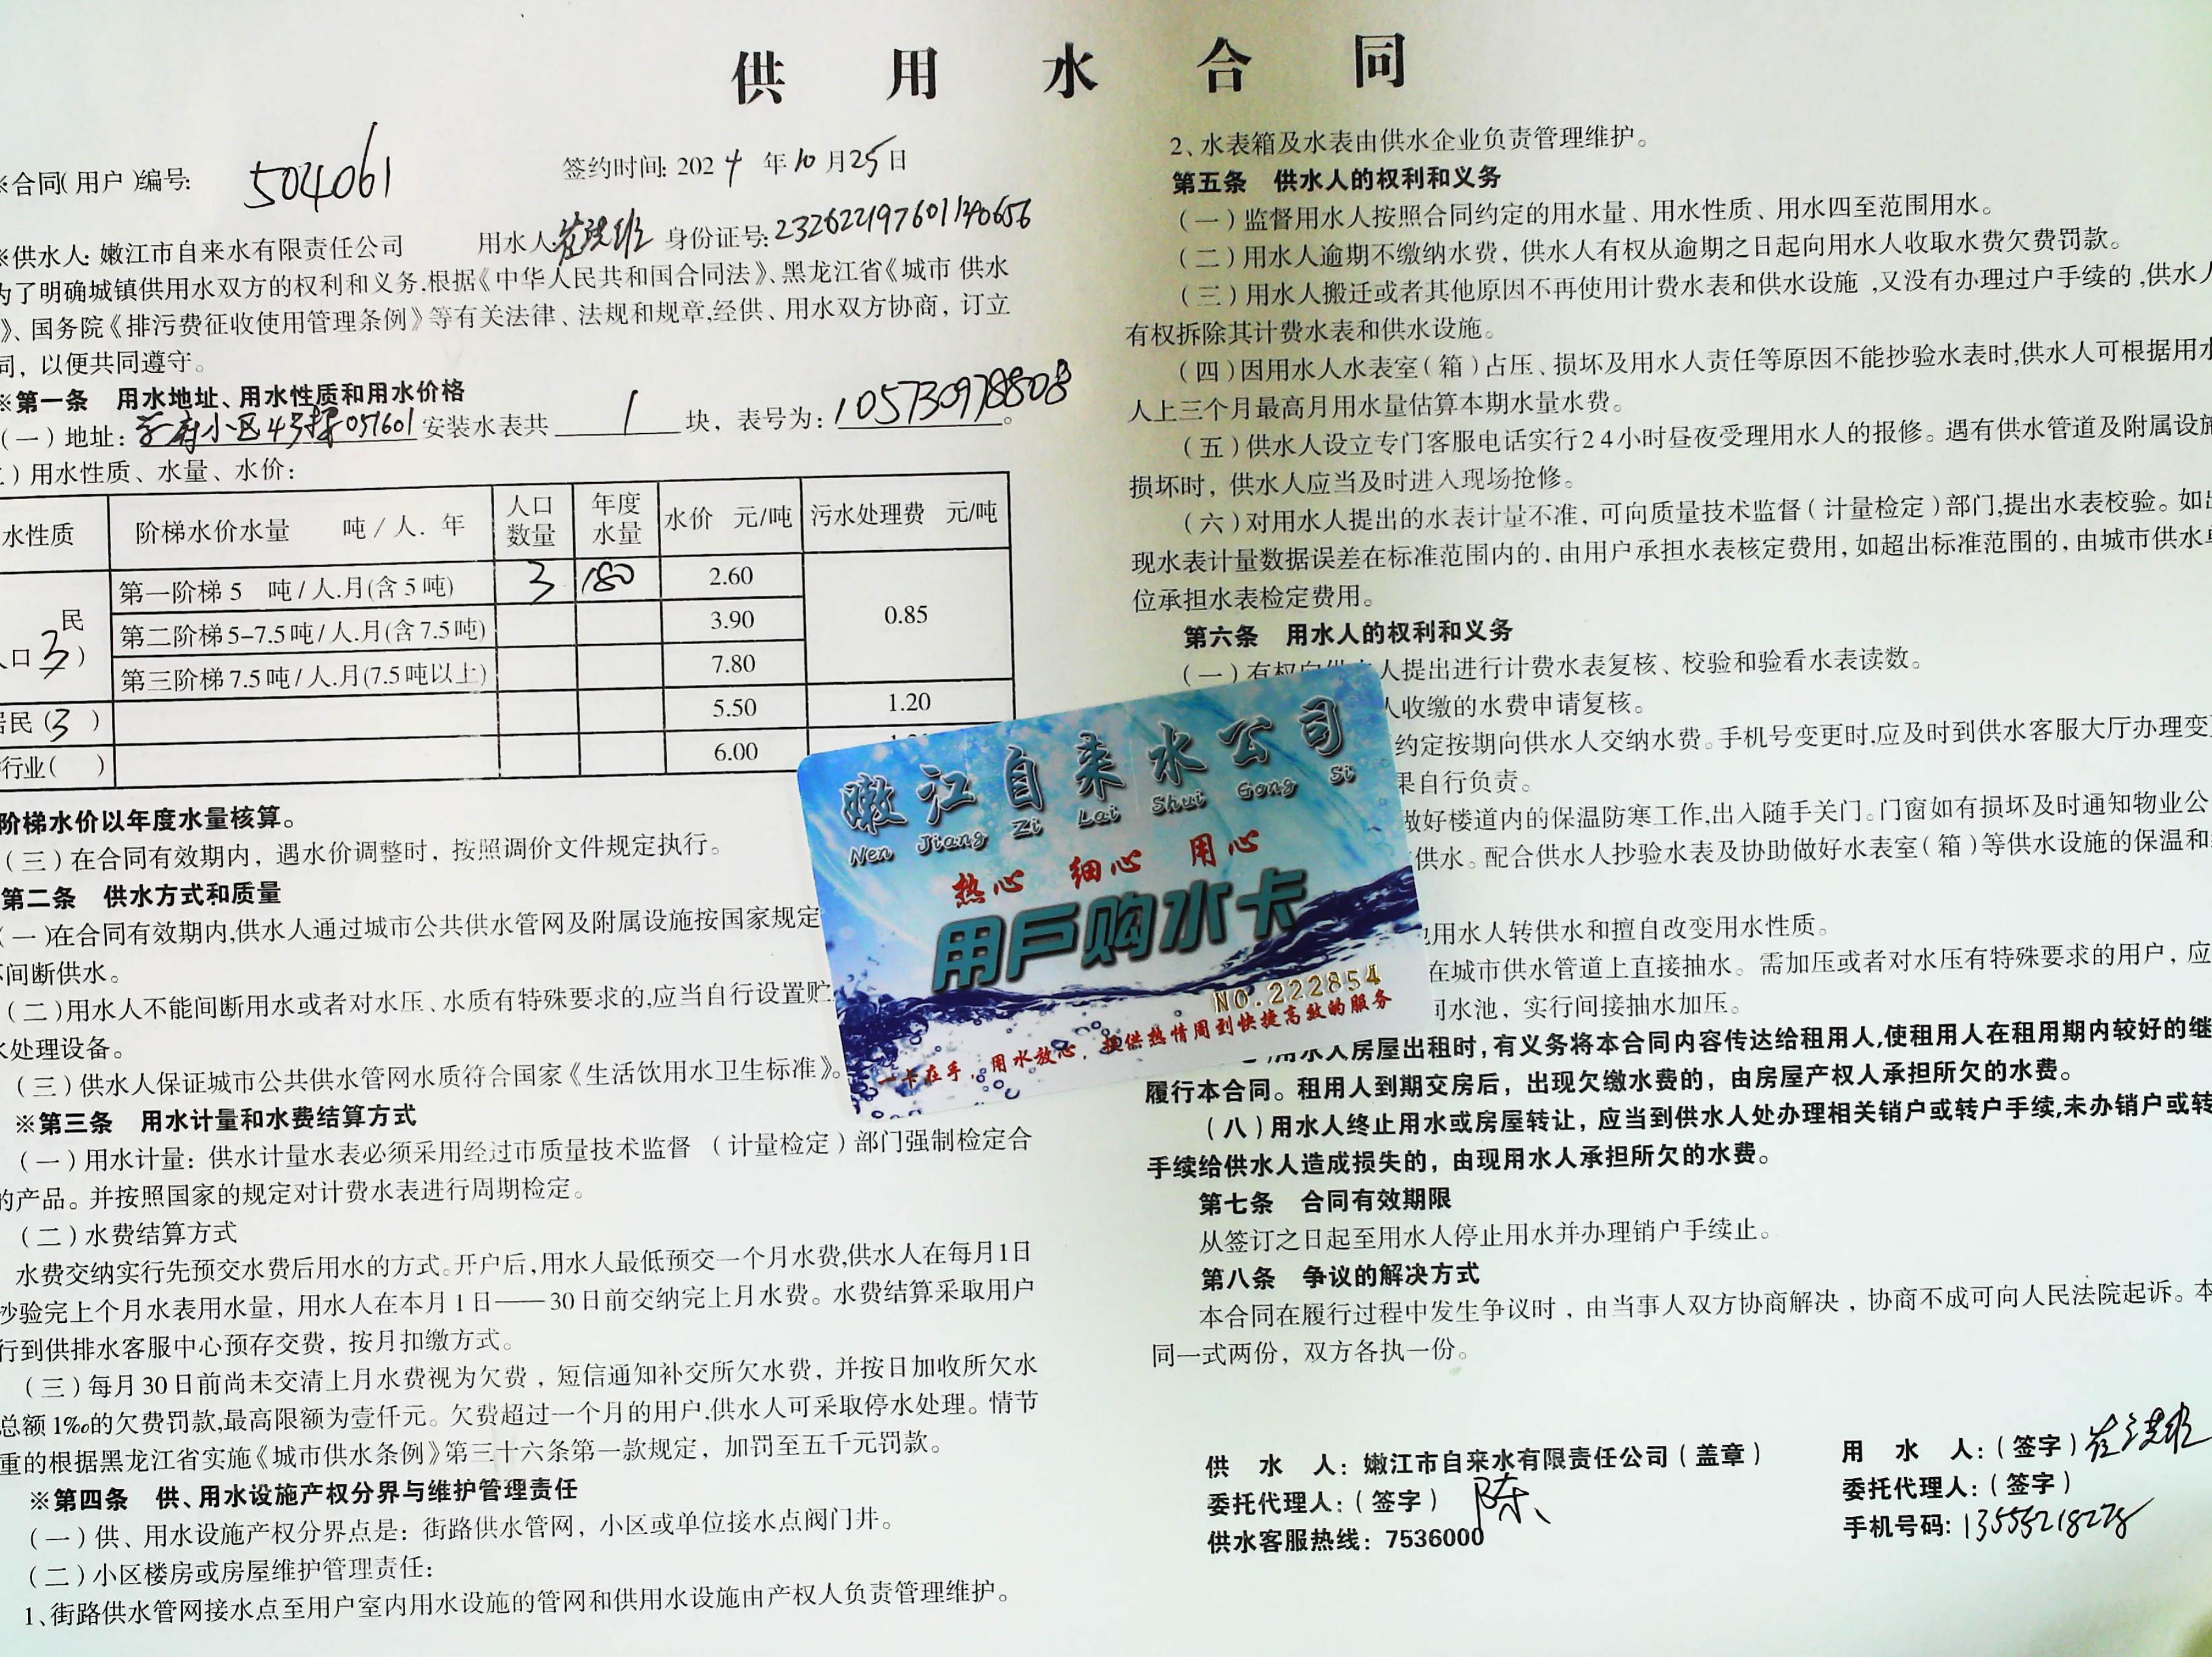 供用水合同
※合同(用户)编号: 504061
签约时间: 2024年10月25日
※供水人: 嫩江市自来水有限责任公司 用水人: 身份证号:
为了明确城镇供用水双方的权利和义务,根据《中华人民共和国合同法》、黑龙江省《城市供水
》、国务院《排污费征收使用管理条例》等有关法律、法规和规章,经供、用水双方协商,订立
同,以便共同遵守。
※第一条 用水地址、用水性质和用水价格
(一)地址: 小区4号楼051601 安装水表共 1 块,表号为:
)用水性质、水量、水价:
水性质 阶梯水价水量 吨/人.年 人口数量 年度水量 水价 元/吨 污水处理费 元/吨
民 第一阶梯5 吨/人.月(含5吨) 3 180 2.60 0.85
口3) 第二阶梯5-7.5吨/人.月(含7.5吨) 3.90
第三阶梯7.5吨/人.月(7.5吨以上) 7.80
居民(3) 5.50 1.20
行业( ) 6.00
阶梯水价以年度水量核算。
(三)在合同有效期内,遇水价调整时,按照调价文件规定执行。
第二条 供水方式和质量
(一)在合同有效期内,供水人通过城市公共供水管网及附属设施按国家规定
不间断供水。
(二)用水人不能间断用水或者对水压、水质有特殊要求的,应当自行设置贮
水处理设备。
(三)供水人保证城市公共供水管网水质符合国家《生活饮用水卫生标准》。
※第三条 用水计量和水费结算方式
(一)用水计量:供水计量水表必须采用经过市质量技术监督(计量检定)部门强制检定合
的产品。并按照国家的规定对计费水表进行周期检定。
(二)水费结算方式
水费交纳实行先预交水费后用水的方式。开户后,用水人最低预交一个月水费,供水人在每月1日
抄验完上个月水表用水量,用水人在本月1日——30日前交纳完上月水费。水费结算采取用户
行到供排水客服中心预存交费,按月扣缴方式。
(三)每月30日前尚未交清上月水费视为欠费,短信通知补交所欠水费,并按日加收所欠水
总额1‰的欠费罚款,最高限额为壹仟元。欠费超过一个月的用户,供水人可采取停水处理。情节
重的根据黑龙江省实施《城市供水条例》第三十六条第一款规定,加罚至五千元罚款。
※第四条 供、用水设施产权分界与维护管理责任
(一)供、用水设施产权分界点是:街路供水管网,小区或单位接水点阀门井。
(二)小区楼房或房屋维护管理责任:
1、街路供水管网接水点至用户室内用水设施的管网和供用水设施由产权人负责管理维护。
2、水表箱及水表由供水企业负责管理维护。
第五条 供水人的权利和义务
(一)监督用水人按照合同约定的用水量、用水性质、用水四至范围用水。
(二)用水人逾期不缴纳水费,供水人有权从逾期之日起向用水人收取水费欠费罚款。
(三)用水人搬迁或者其他原因不再使用计费水表和供水设施,又没有办理过户手续的,供水人
有权拆除其计费水表和供水设施。
(四)因用水人水表室(箱)占压、损坏及用水人责任等原因不能抄验水表时,供水人可根据用水
人上三个月最高月用水量估算本期水量水费。
(五)供水人设立专门客服电话实行24小时昼夜受理用水人的报修。遇有供水管道及附属设施
损坏时,供水人应当及时进入现场抢修。
(六)对用水人提出的水表计量不准,可向质量技术监督(计量检定)部门,提出水表校验。如出
现水表计量数据误差在标准范围内的,由用户承担水表核定费用,如超出标准范围的,由城市供水单
位承担水表检定费用。
第六条 用水人的权利和义务
(一)有权向供水人提出进行计费水表复核、校验和验看水表读数。
人收缴的水费申请复核。
约定按期向供水人交纳水费。手机号变更时,应及时到供水客服大厅办理变
果自行负责。
做好楼道内的保温防寒工作,出入随手关门。门窗如有损坏及时通知物业公
供水。配合供水人抄验水表及协助做好水表室(箱)等供水设施的保温和
用水人转供水和擅自改变用水性质。
在城市供水管道上直接抽水。需加压或者对水压有特殊要求的用户,应
间水池,实行间接抽水加压。
用水人房屋出租时,有义务将本合同内容传达给租用人,使租用人在租用期内较好的继
履行本合同。租用人到期交房后,出现欠缴水费的,由房屋产权人承担所欠的水费。
(八)用水人终止用水或房屋转让,应当到供水人处办理相关销户或转户手续,未办销户或转
手续给供水人造成损失的,由现用水人承担所欠的水费。
第七条 合同有效期限
从签订之日起至用水人停止用水并办理销户手续止。
第八条 争议的解决方式
本合同在履行过程中发生争议时,由当事人双方协商解决,协商不成可向人民法院起诉。本
同一式两份,双方各执一份。
供水人:嫩江市自来水有限责任公司(盖章)
委托代理人:(签字) 陈
供水客服热线:7536000
用水人:(签字)
委托代理人:(签字)
手机号码: 13555218278
嫩江自来水公司
Nen Jiang Zi Lai Shui Gong Si
热心 细心 用心
用戶购水卡
NO.222854
一卡在手,用水放心,提供热情周到快捷高效的服务